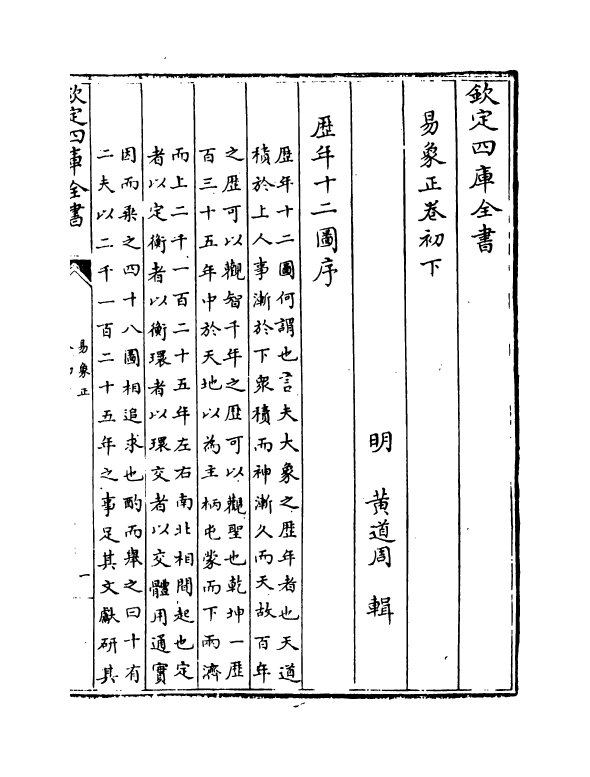 欽定四庫全書
易象正卷初下
明 黃道周 輯
歴年十二圖序
歴年十二圖何謂也言夫大象之歴年者也天道
積於上人事漸於下衆積而神漸久而天故百年
之歴可以觀智千年之歴可以觀聖也乾坤一歴
百三十五年中於天地以為主柄屯蒙而下兩濟
而上二千一百二十五年左右南北相間起也定
者以定衡者以衡環者以環交者以交體用通實
因而乘之四十八圖相追求也酌而舉之曰十有
二夫以二千一百二十五年之事足其文獻研其
欽定四庫全書
易象正
一